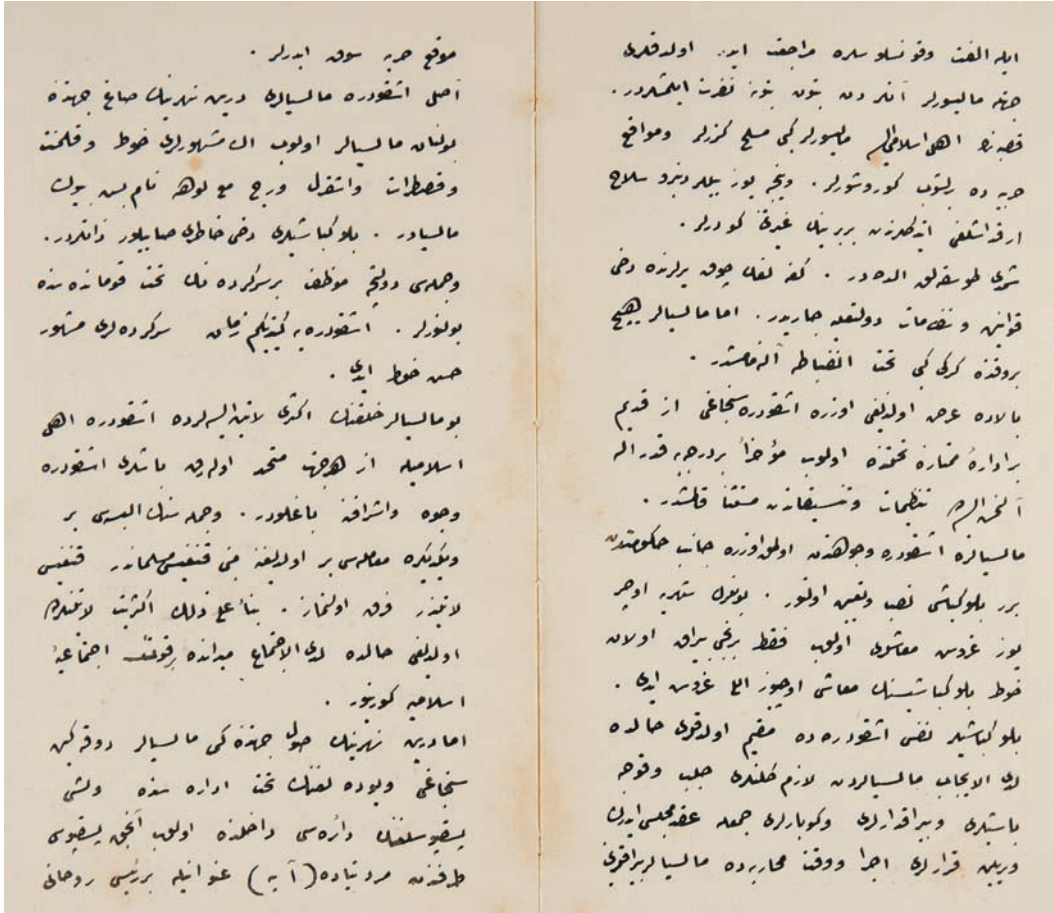 ايله الفت وقونسلوسلره مراجعت ايدر اولدقلرى
جهتله ماليسورلر آنلردن بتون بتون نفرت ايتمشلردر .
قصبه نك اهل اسلامى ماليسورلر كبى مسلح كزرلر ومواقع
حربيه ده كوروشورلر . ونيجه يوز بيللردنبرو سلاح
ارقداشلغى ايتدكلرندن بربرينك غيرتنى كودرلر .
شمدى طوسقه لق الده در . كغه لغك چوق يرلرنده دخى
قوانين و نظامات دولتعليه جاريدر . اما ماليسيالر هيچ
بروقتده كركى كبى تحت انضباطه آلنه مامشدر .
بالاده عرض اولنديغى اوزره اشقودره سنجاغى از قديم
بر ادارۀ ممتازه تحتنده اولوب مؤخراً بر درجه يه قدر اله
آلنمش ايسه ده تنظيمات وتنسيقاتدن مستثنا قالمشدر .
ماليسيالره اشقودره وجوهندن اولمق اوزره جانب حكومتدن
برر بلوكباشى نصب وتعيين اولنور . بونلرك شهريه اوچر
يوز غروش معاشلرى اولوب فقط برنجى بيراق اولان
خوط بلوكباشيسنك معاشى اوچيوز اللى غروش ايدى .
بلوكباشيلر نفس اشقودره ده مقيم اولدقلرى حالده
لدى الايجاب ماليسيالردن لازم كلنلرى جلب وقوجه
باشيلرى وبيراقدارلرى وكوبارلرى جمعله عقد مجلس ايدرك
ويريلن قرارلرى اجرا ووقت محاربه ده ماليسيالر بيراقلرينى
موقع حربه سوق ايدرلر .
اصل اشقودره ماليسيالرى درين نهرينك صاغ جهتنده
بولنان ماليسيالر اولوب اك مشهورلرى خوط وقلمنت
وقصطرات واشقرل ورج مع لوهه نام بش بيوك
ماليسيادر . بلوكباشيلرى دخى خاطرى صاييلور ذاتلردر .
وجمله سى دولتجه موظف بر سركرده نك تحت قومانده سنده
بولنورلر . اشقودره يه كيتديكم زمان سركرده لرى مشهور
حسن خوط ايدى .
بو ماليسيالر خلقنك اكثرى لاتين ايسه لرده اشقودره اهل
اسلاميله از هر جهت متحد اوله رق باشلرى اشقودره
وجوه واشرافنه باغلودر . وجمله سنك البسه سى بر
ويكديكره معامله سى بر اولديغندن قنغيسى مسلماندر قنغيسى
لاتيندر فرق اولنماز . بناءً على ذلك اكثريت لاتينلرده
اولديغى حالده لدى الاجتماع ميدانده بر قوت اجتماعيۀ
اسلاميه كورينور .
اما درين نهرينك صول جهتنده كى ماليسيالر دوقه كين
سنجاغى ويوده لغنك تحت اداره سنده ولشى
پسقپوسلغنك دائره سى داخلنده اولوب آنجق پسقپوسى
طرفندن مرديتاده (آبه) عنوانيله بر رئيس روحانى